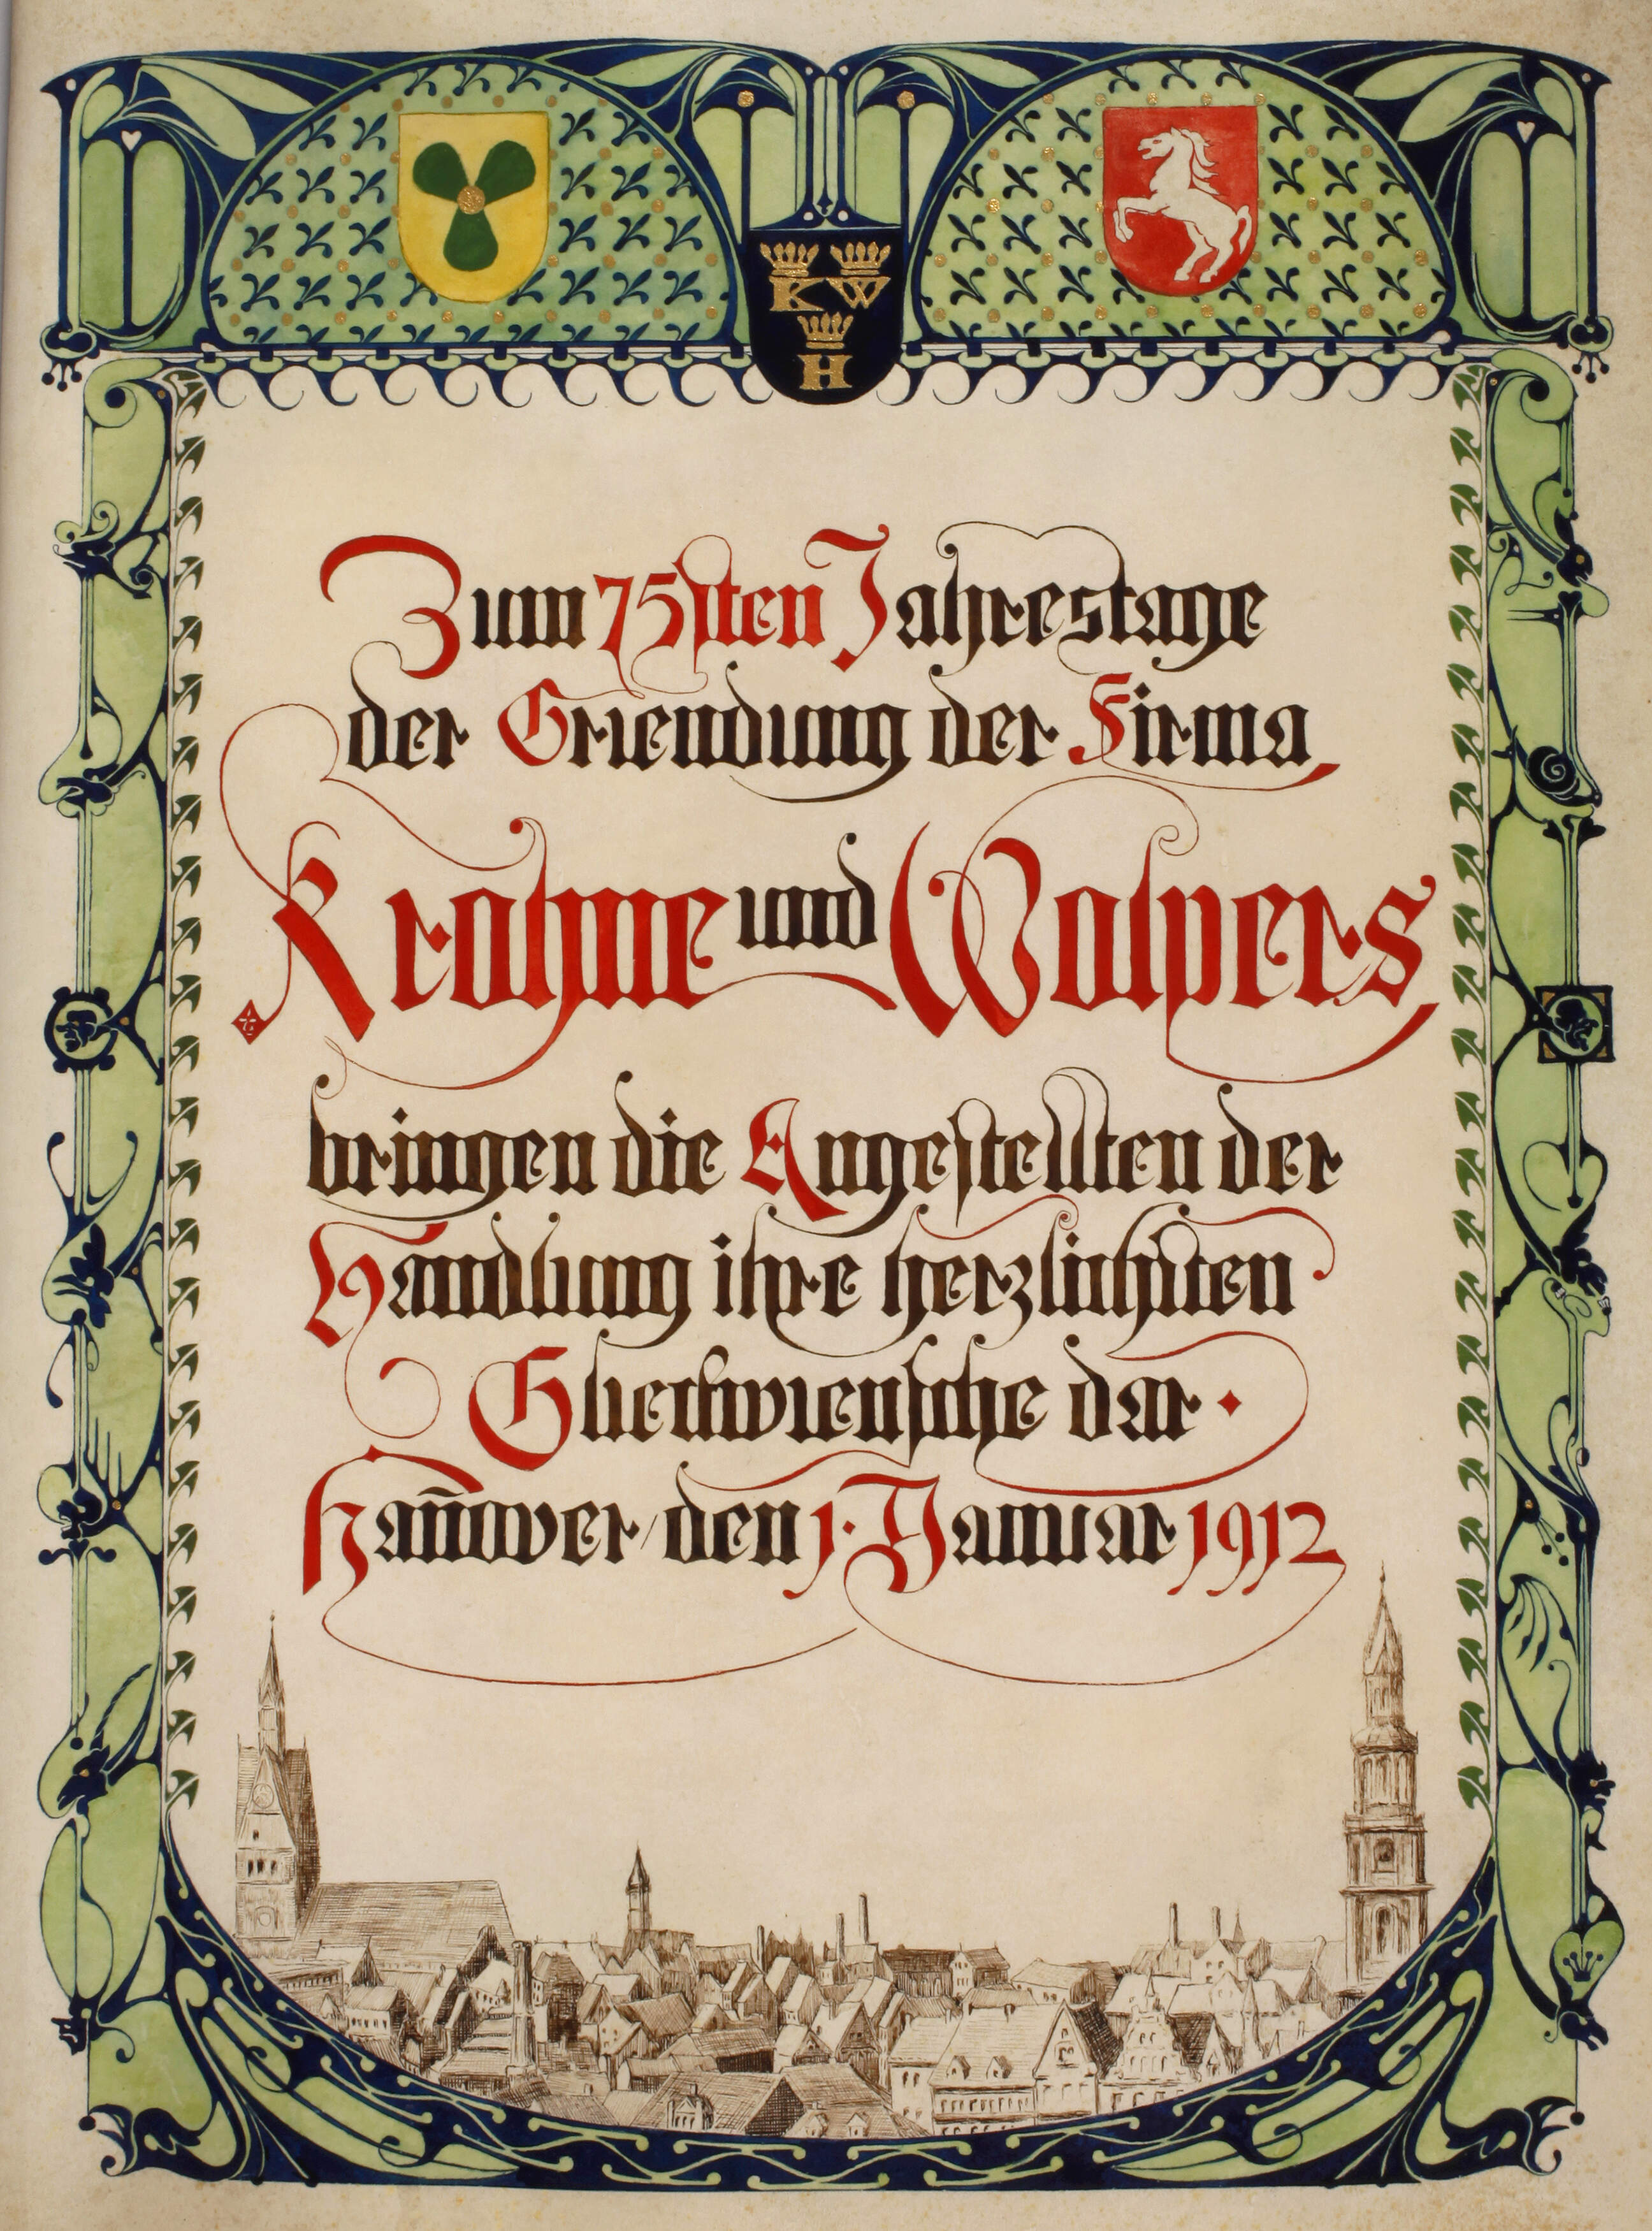 K W
H
Zum 75ſten Jahrestage
der Gruendung der Firma
Krohne und Wolpers
bringen die Angeſtellten der
Handlung ihre herzlichſten
Glueckwuenſche dar·
Han̄over/den 1. Januar 1912